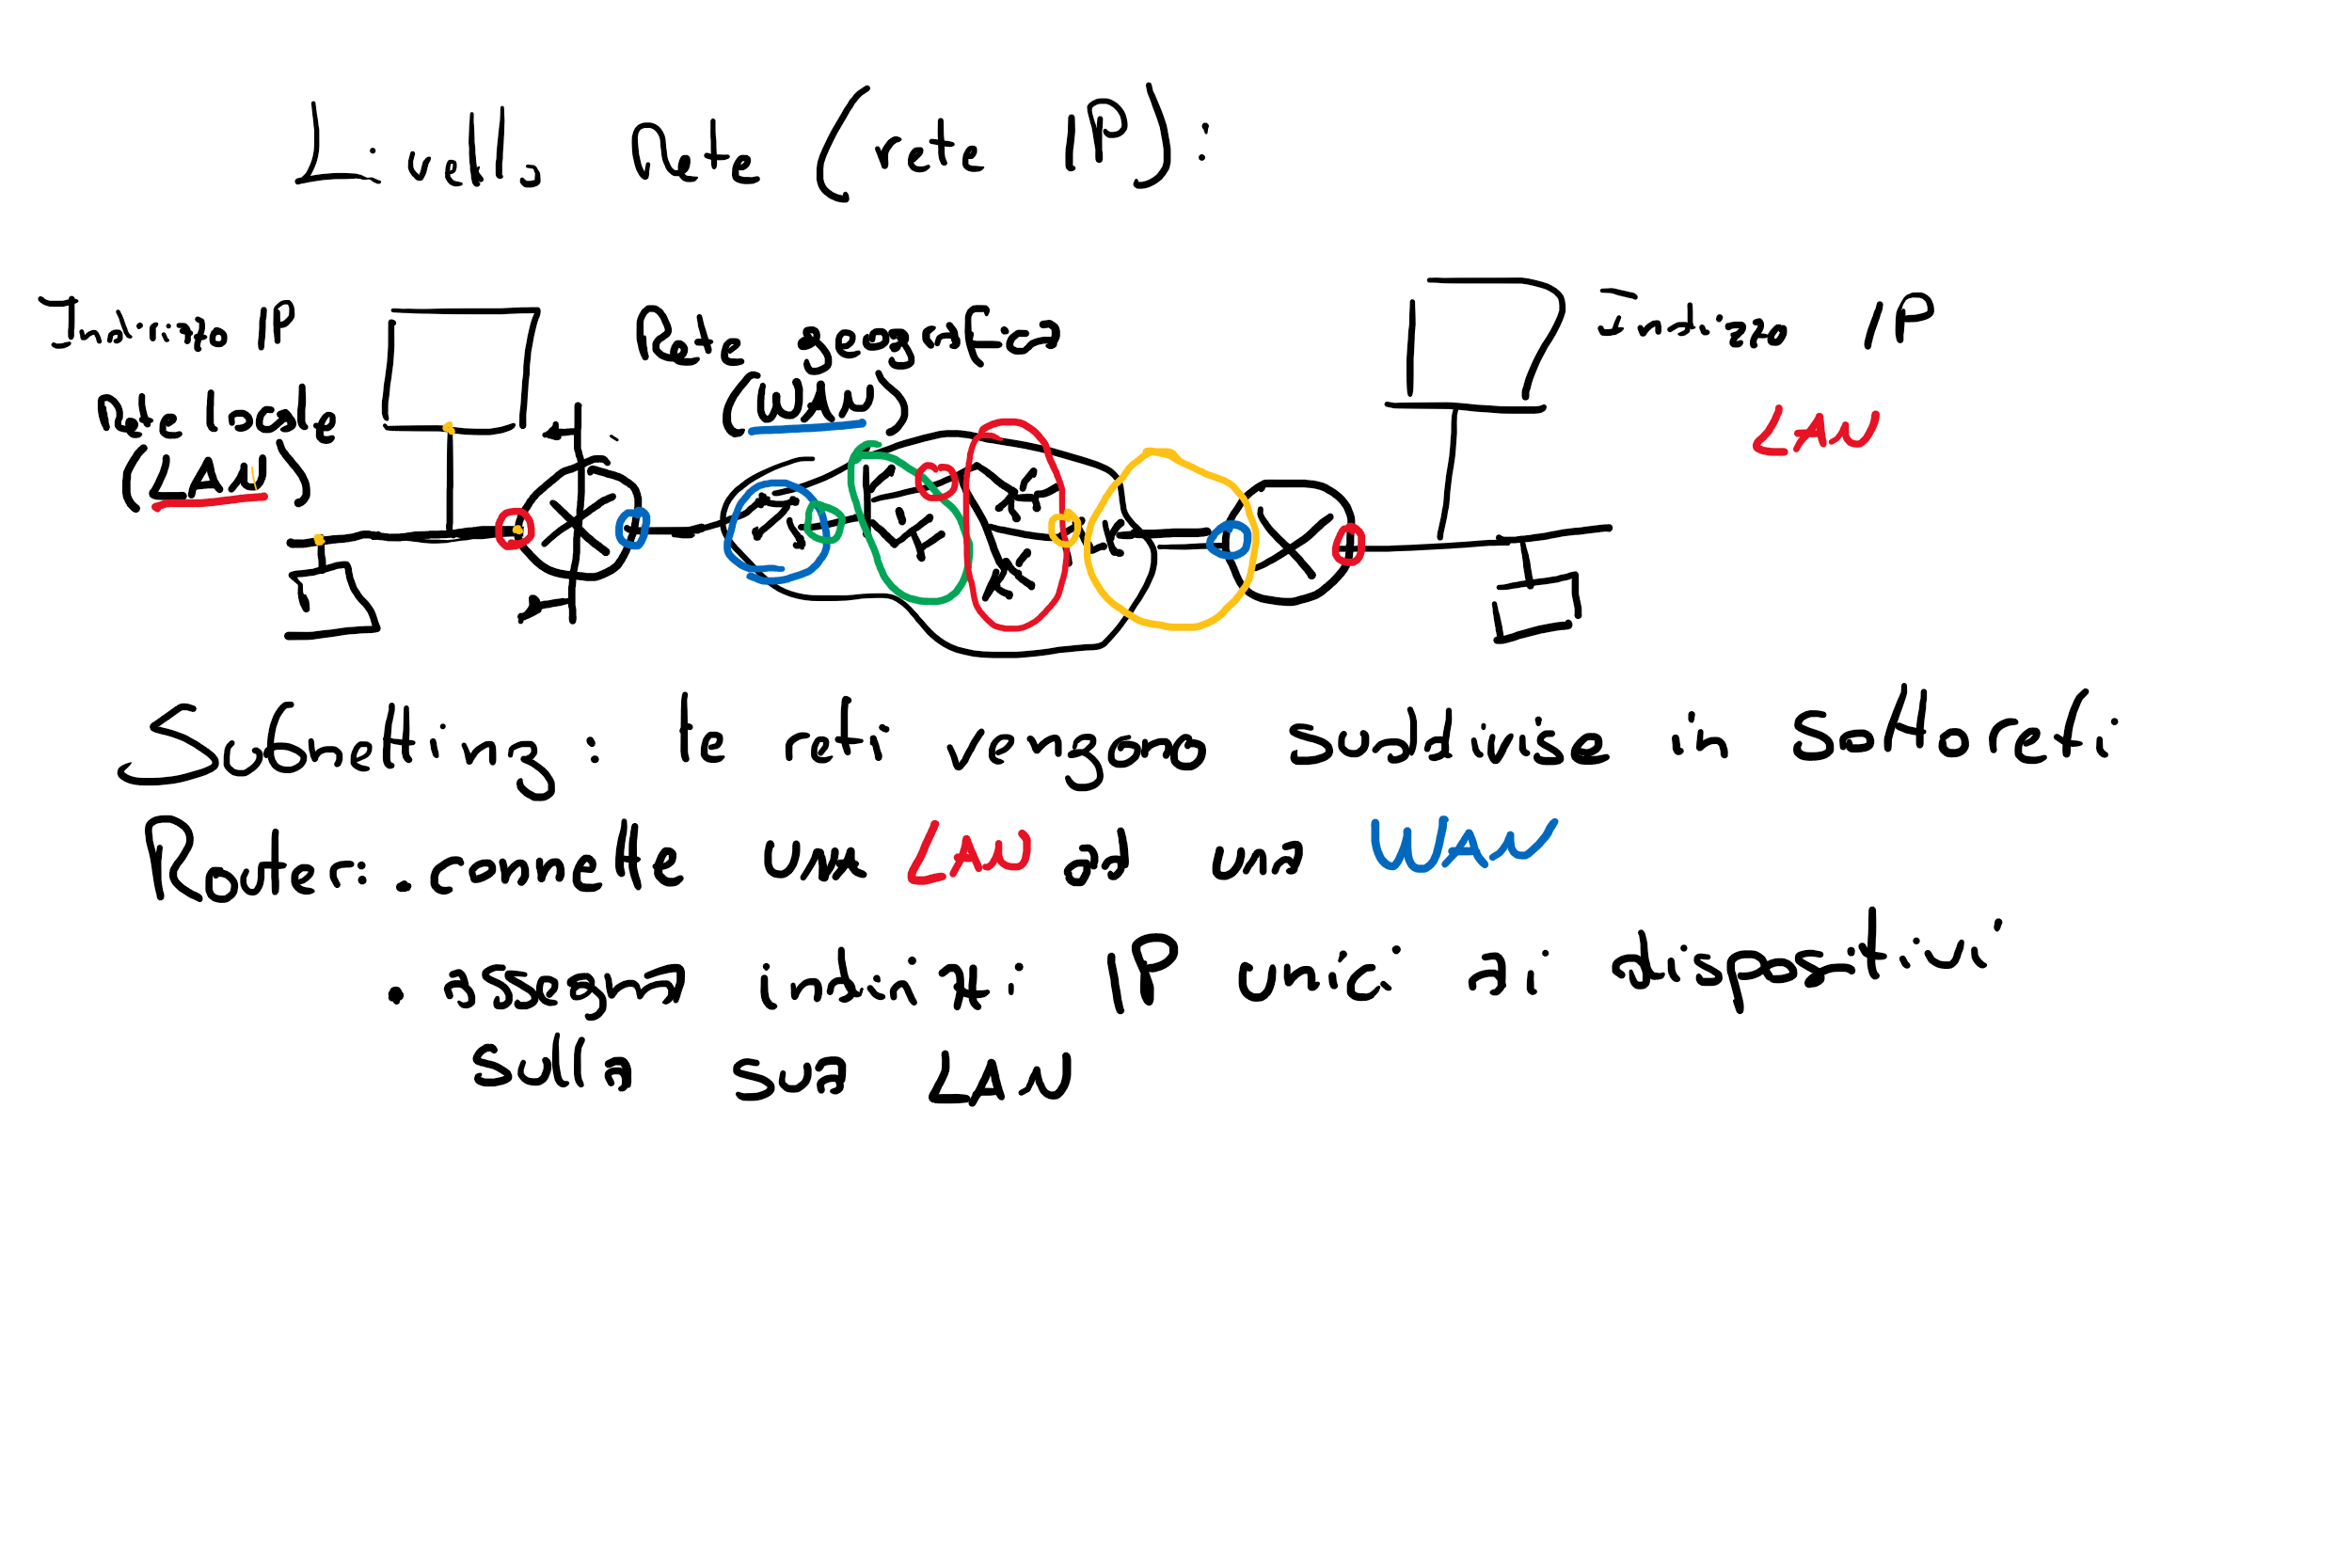 Livello Rete (rete IP):
Indirizzo IP
Rete locale
(LAN)
Rete geografica
(WAN)
Indirizzo IP
LAN
Subnetting: le reti vengono suddivise in sottoreti
Router: . connette una LAN ad una WAN
. assegna indirizzi IP unici ai dispositivi
sulla sua LAN